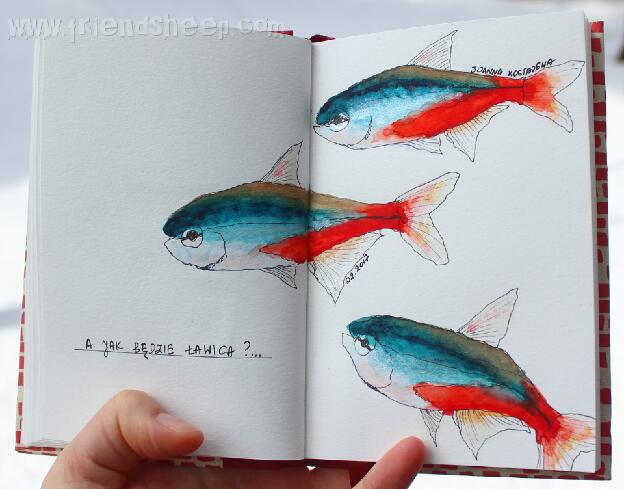 www.friendsheep.com
JOANNA KOSTRZEWA
02.2017
A JAK BĘDZIE ŁAWICA ?...